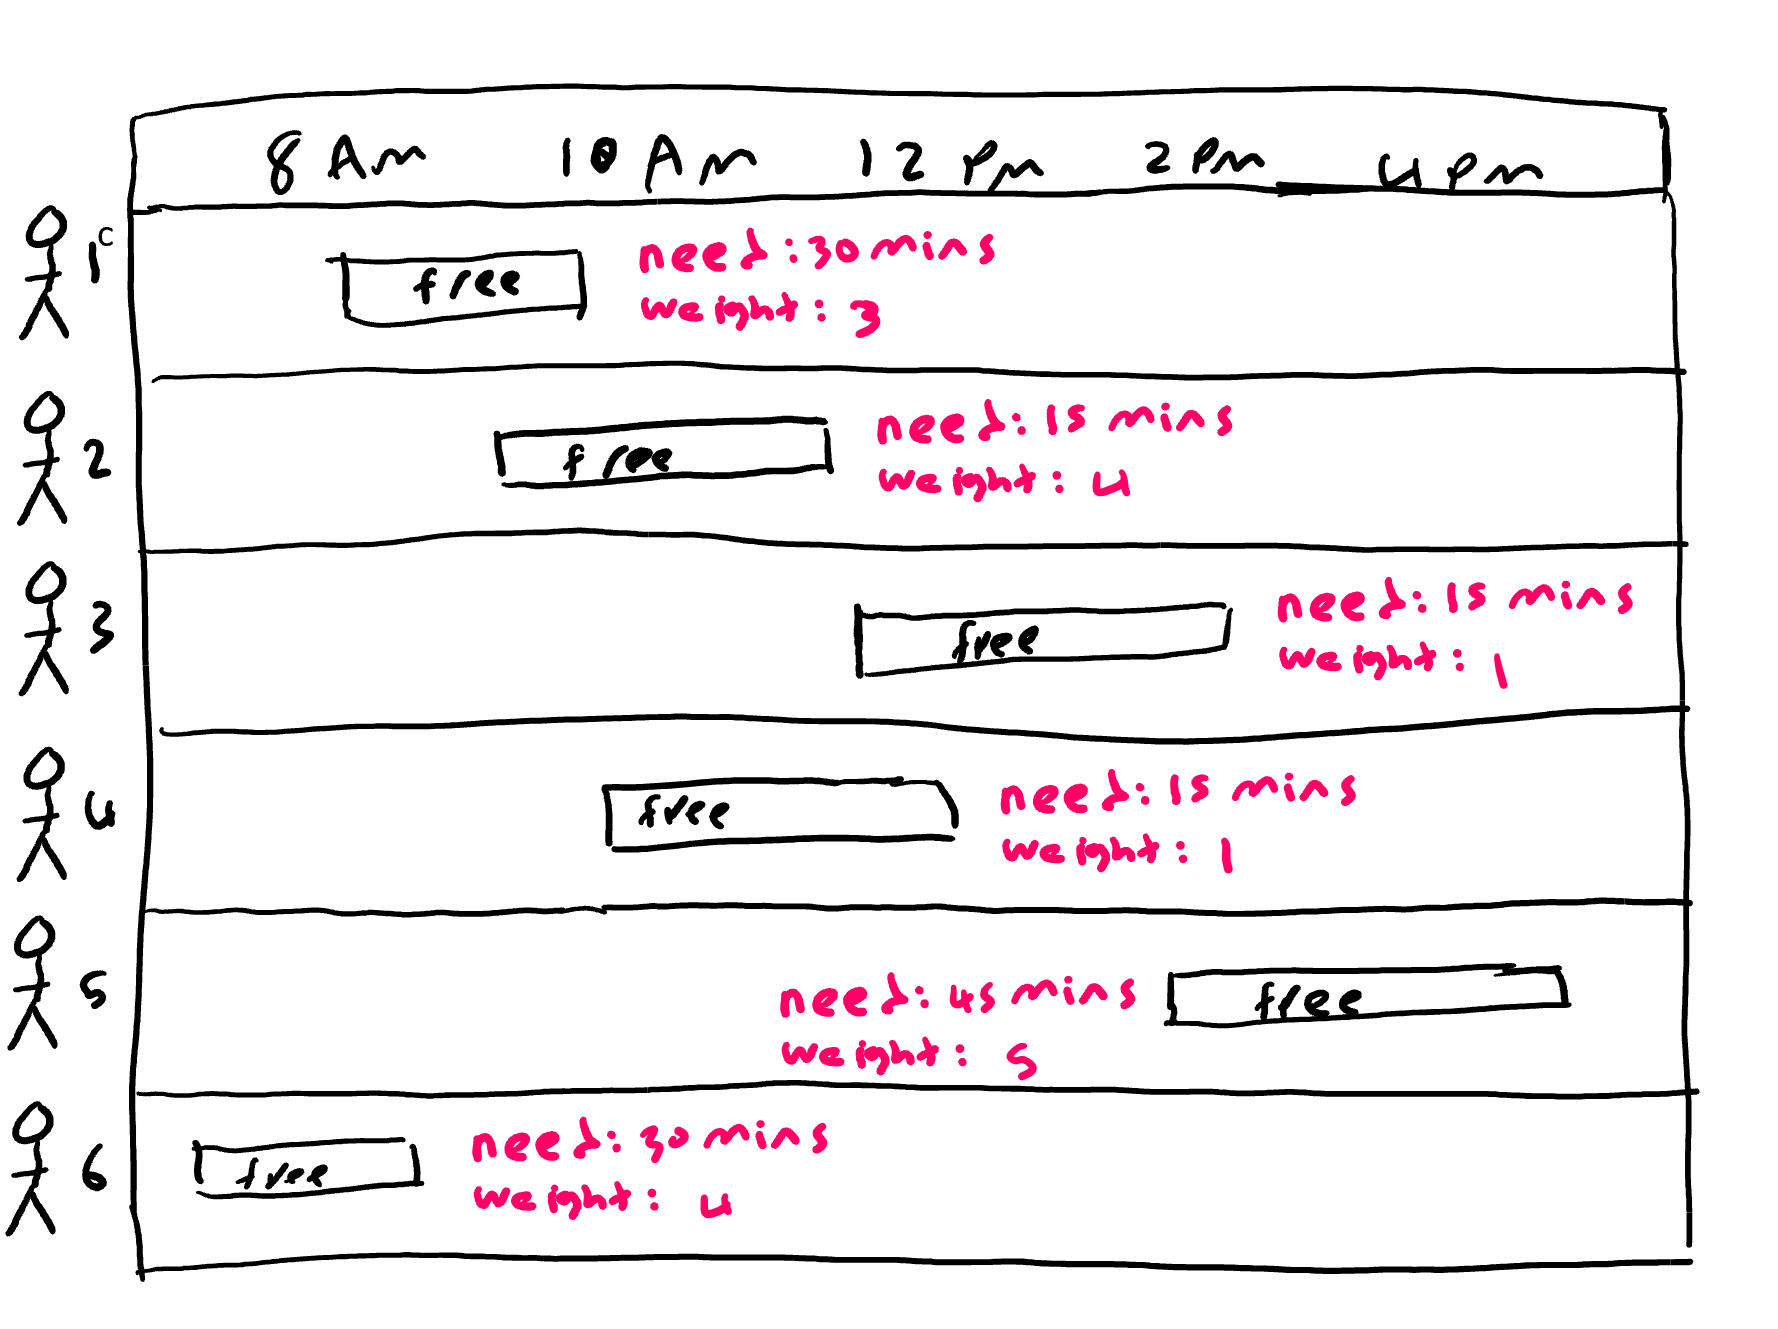 8 Am 10 Am 12 Pm 2 Pm 4 pm
1 c
free
need: 30 mins
weight: 3
2
free
need: 15 mins
weight: 4
3
free
need: 15 mins
weight: 1
4
free
need: 15 mins
weight: 1
5
need: 45 mins
weight: 5
free
6
free
need: 30 mins
weight: 4